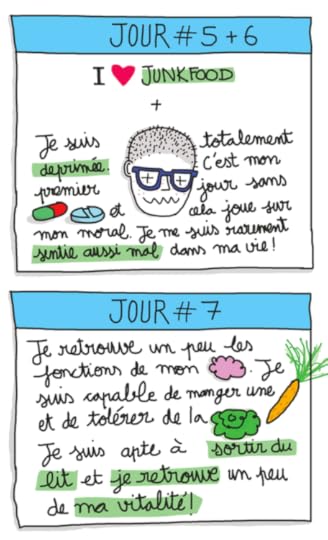 JOUR #5+6
I ♥ JUNKFOOD
+
Je suis totalement
deprimée. C'est mon
premier jour sans
et cela joue sur
mon moral. Je me suis rarement
sentie aussi mal dans ma vie!
JOUR #7
Je retrouve un peu les
fonctions de mon . Je
suis capable de manger une
et de tolérer de la
Je suis apte à sortir du
lit et je retrouve un peu
de ma vitalité!